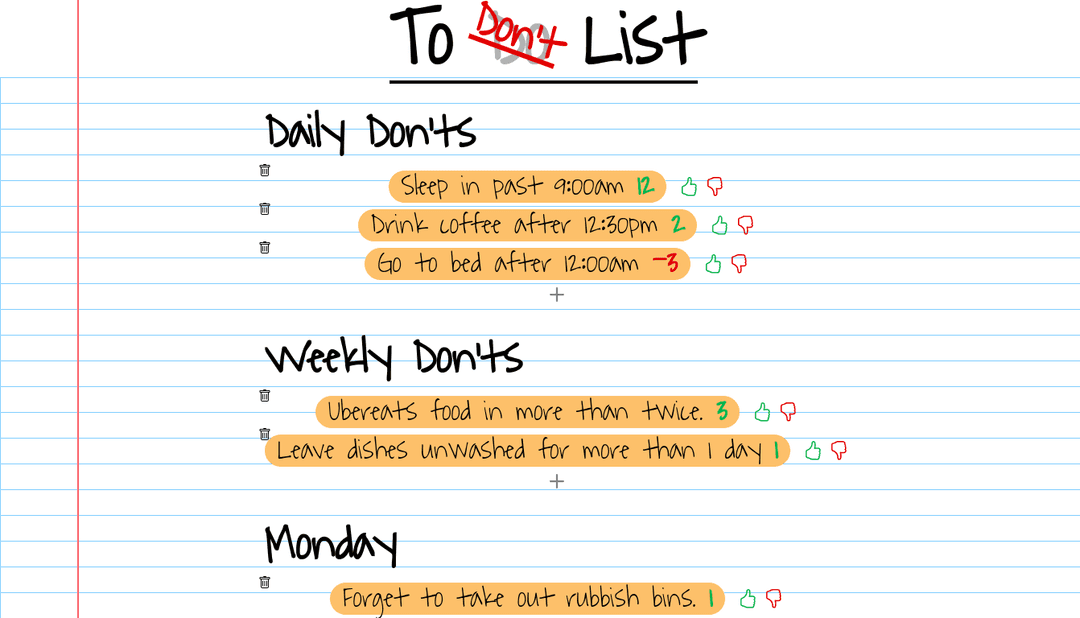 To Don't List
Daily Don'ts
Sleep in past 9:00am 12
Drink coffee after 12:30pm 2
Go to bed after 12:00am -3
+
Weekly Don'ts
Ubereats food in more than twice. 3
Leave dishes unwashed for more than 1 day 1
+
Monday
Forget to take out rubbish bins. 1